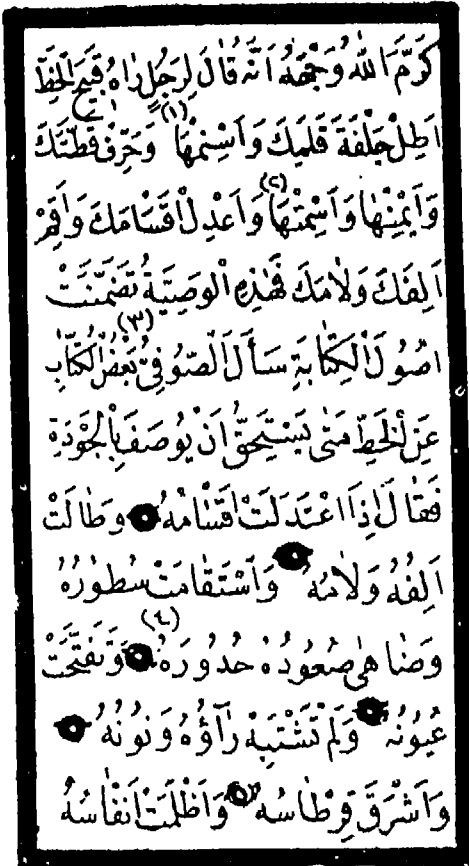 كَرَّمَ اللّٰهُ وَجْهَهُ اَنَّهُ قَالَ لِرَجُلٍ رَاٰهُ قَبِيحَ الْخَطِّ
اَطِلْ جِلْفَةَ قَلَمِكَ وَاَسْنِمْهَا (١) وَحَرِّفْ قَطَّتَكَ
وَاَيْمِنْهَا وَاَسْمِتْهَا (٢) وَاَعْدِلْ اَقْسَامَكَ وَاَقِمْ
اَلِفَكَ وَلَامَكَ فَهٰذِهِ الْوَصِيَّةُ تَضَمَّنَتْ
اُصُولَ الْكِتَابَةِ (٣) سَأَلَ الصُّوفِىُّ بَعْضُ الْكُتَّابِ
عَنِ الْخَطِّ مَتٰى يَسْتَحِقُّ اَنْ يُوصَفَ بِالْجَوْدَةِ
فَقَالَ اِذَا اعْتَدَلَتْ اَقْسَامُهُ وَطَالَتْ
اَلِفُهُ وَلَامُهُ وَاَسْتَقَامَتْ سُطُورُهُ
وَضَاهٰى صُعُودُهُ حُدُورَهُ (٤) وَتَفَتَّحَتْ
عُيُونُهُ وَلَمْ تَشْتَبِهْ رَآؤُهُ وَنُونُهُ
وَاَشْرَقَ قِرْطَاسُهُ وَاَظْلَمَتْ اَنْفَاسُهُ